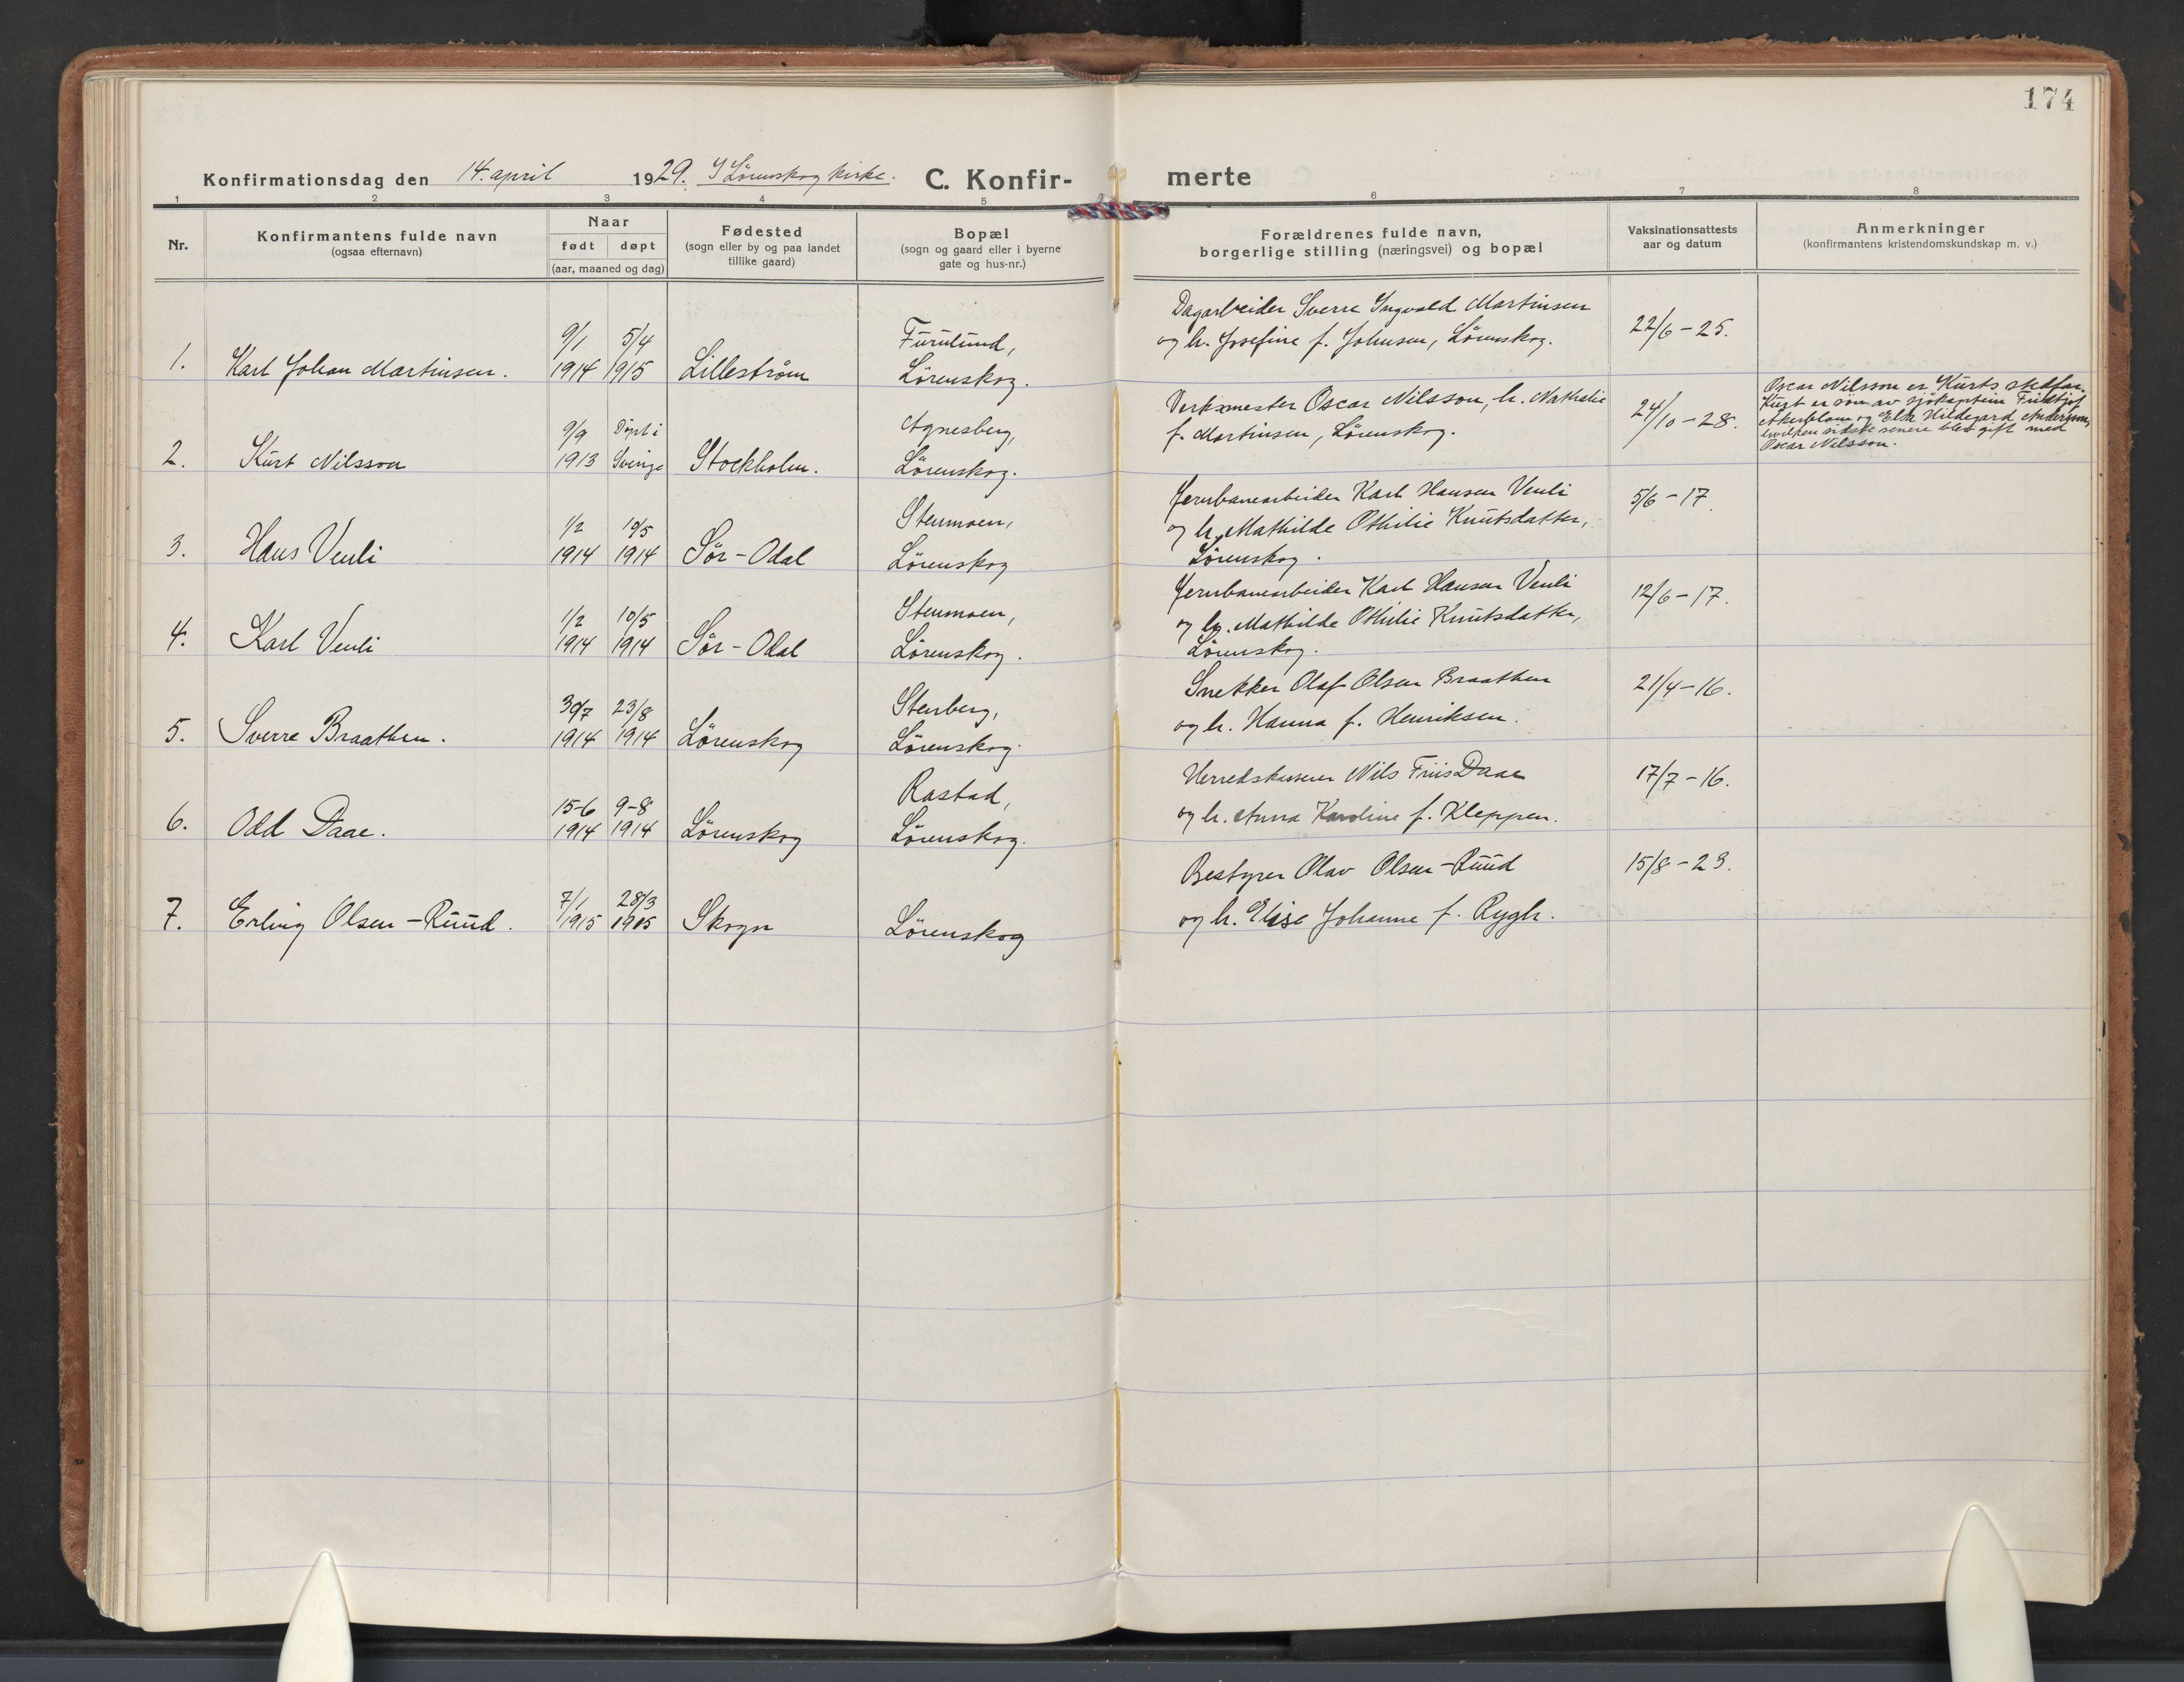 174
Konfirmationsdag den 14. april 1929. I Lörenskog kirke. C. Konfir-merte
1 2 3 4 5 6 7 8
Nr.
Konfirmantens fulde navn
(ogsaa efternavn)
Naar
født døpt
(aar, maaned og dag)
Fødested
(sogn eller by og paa landet
tillike gaard)
Bopæl
(sogn og gaard eller i byerne
gate og hus-nr.)
Forældrenes fulde navn,
borgerlige stilling (næringsvei) og bopæl
Vaksinationsattests
aar og datum
Anmerkninger
(konfirmantens kristendomskundskap m. v.)
1. Karl Johan Martinsen. 9/1 1914 5/4 1915 Lilleström Furulund, Lörenskog.
Dagarbeider Sverre Ingvald Martinsen
og h. Josefine f. Johnsen, Lörenskog.
22/6 - 25.
2. Kurt Nilsson 9/9 1913 Döpt i Sverige Stockholm. Agnesberg, Lörenskog.
Verksmester Oscar Nilsson, h. Nathalie
f. Martinsen, Lörenskog.
24/10 - 28.
Oscar Nilsson er Kurts stedfar.
Kurt er sön av sjökaptein Fridtjof
Åkerblom og Elsa Hildegard Andersson,
hvilken sidste senere blev gift med
Oscar Nilsson.
3. Hans Venli 1/2 1914 10/5 1914 Sör-Odal Stenmoen, Lörenskog
Jernbanearbeider Karl Hansen Venli
og h. Mathilde Othilie Knutsdatter,
Lörenskog.
5/6 - 17.
4. Karl Venli 1/2 1914 10/5 1914 Sör-Odal Stenmoen, Lörenskog.
Jernbanearbeider Karl Hansen Venli
og h. Mathilde Othilie Knutsdatter,
Lörenskog.
12/6 - 17.
5. Sverre Braathen. 30/7 1914 23/8 1914 Lörenskog Stenberg, Lörenskog.
Snekker Olaf Olsen Braathen
og h. Hanna f. Henriksen.
21/4 - 16.
6. Odd Daae. 15-6 1914 9-8 1914 Lörenskog Rastad, Lörenskog.
Herredskasserer Nils Friis Daae
og h. Anna Karoline f. Kleppen.
17/7 - 16.
7. Erling Olsen-Ruud. 7/1 1915 28/3 1915 Skogn Lörenskog
Bestyrer Olav Olsen-Ruud
og h. Elise Johanne f. Rygh.
15/8 - 23.